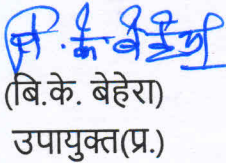 बि.के. बेहेरा
(बि.के. बेहेरा)
उपायुक्त(प्र.)